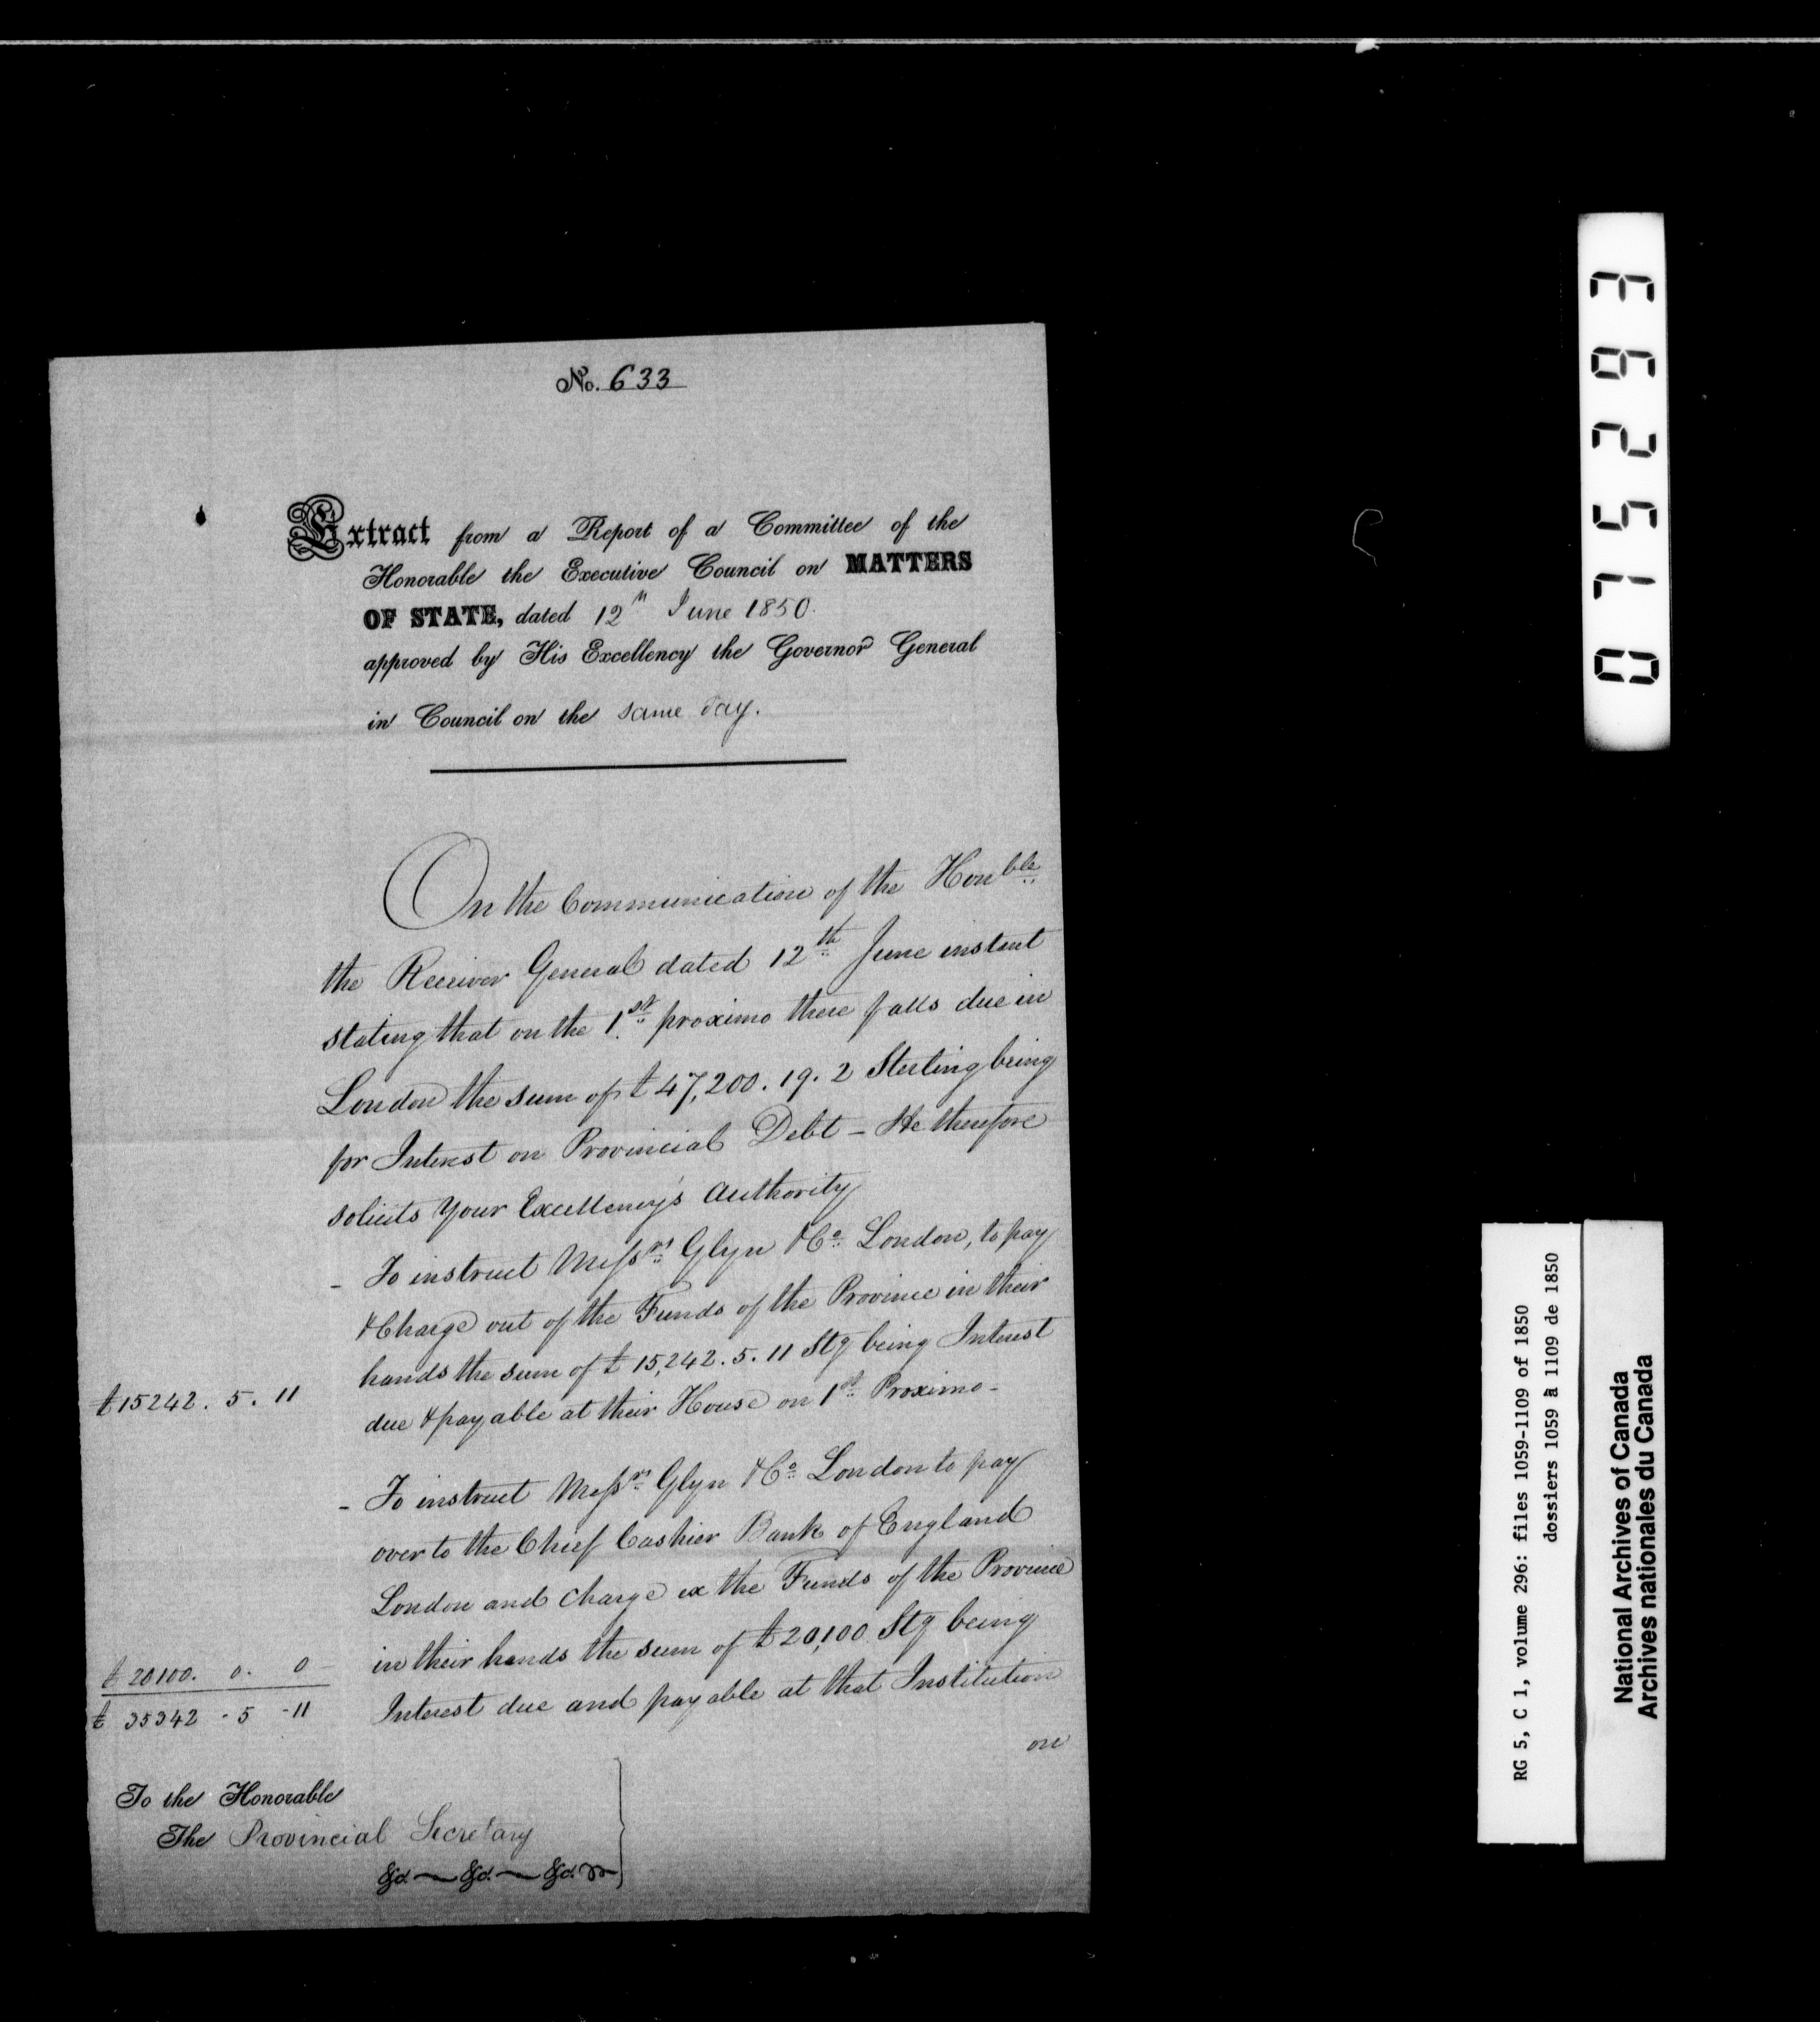 No. 633
Extract from a Report of a Committee of the
Honorable the Executive Council on MATTERS
OF STATE, dated 12th June 1850.
approved by His Excellency the Governor General
in Council on the same day.
On the Communication of the Honble
the Receiver General dated 12th June instant
stating that on the 1st proximo there falls due in
London the sum of £47,200. 19. 2 Sterling being
for Interest on Provincial Debt - He therefore
solicits Your Excellency's Authority
- To instruct Messrs Glyn & Co London, to pay
& Charge out of the Funds of the Province in their
hands the sum of £15,242. 5. 11 Stg being Interest
£15242. 5. 11
due & payable at their House on 1st Proximo -
- To instruct Messrs Glyn & Co London to pay
over to the Chief Cashier Bank of England
London and charge ex the Funds of the Province
in their hands the sum of £20,100 Stg being
£20100. 0. 0
Interest due and payable at that Institution
£35342 - 5 - 11
on
To the Honorable
The Provincial Secretary
&c. &c. &c.
075293
RG 5, C 1, volume 296: files 1059-1109 of 1850
dossiers 1059 à 1109 de 1850
National Archives of Canada
Archives nationales du Canada